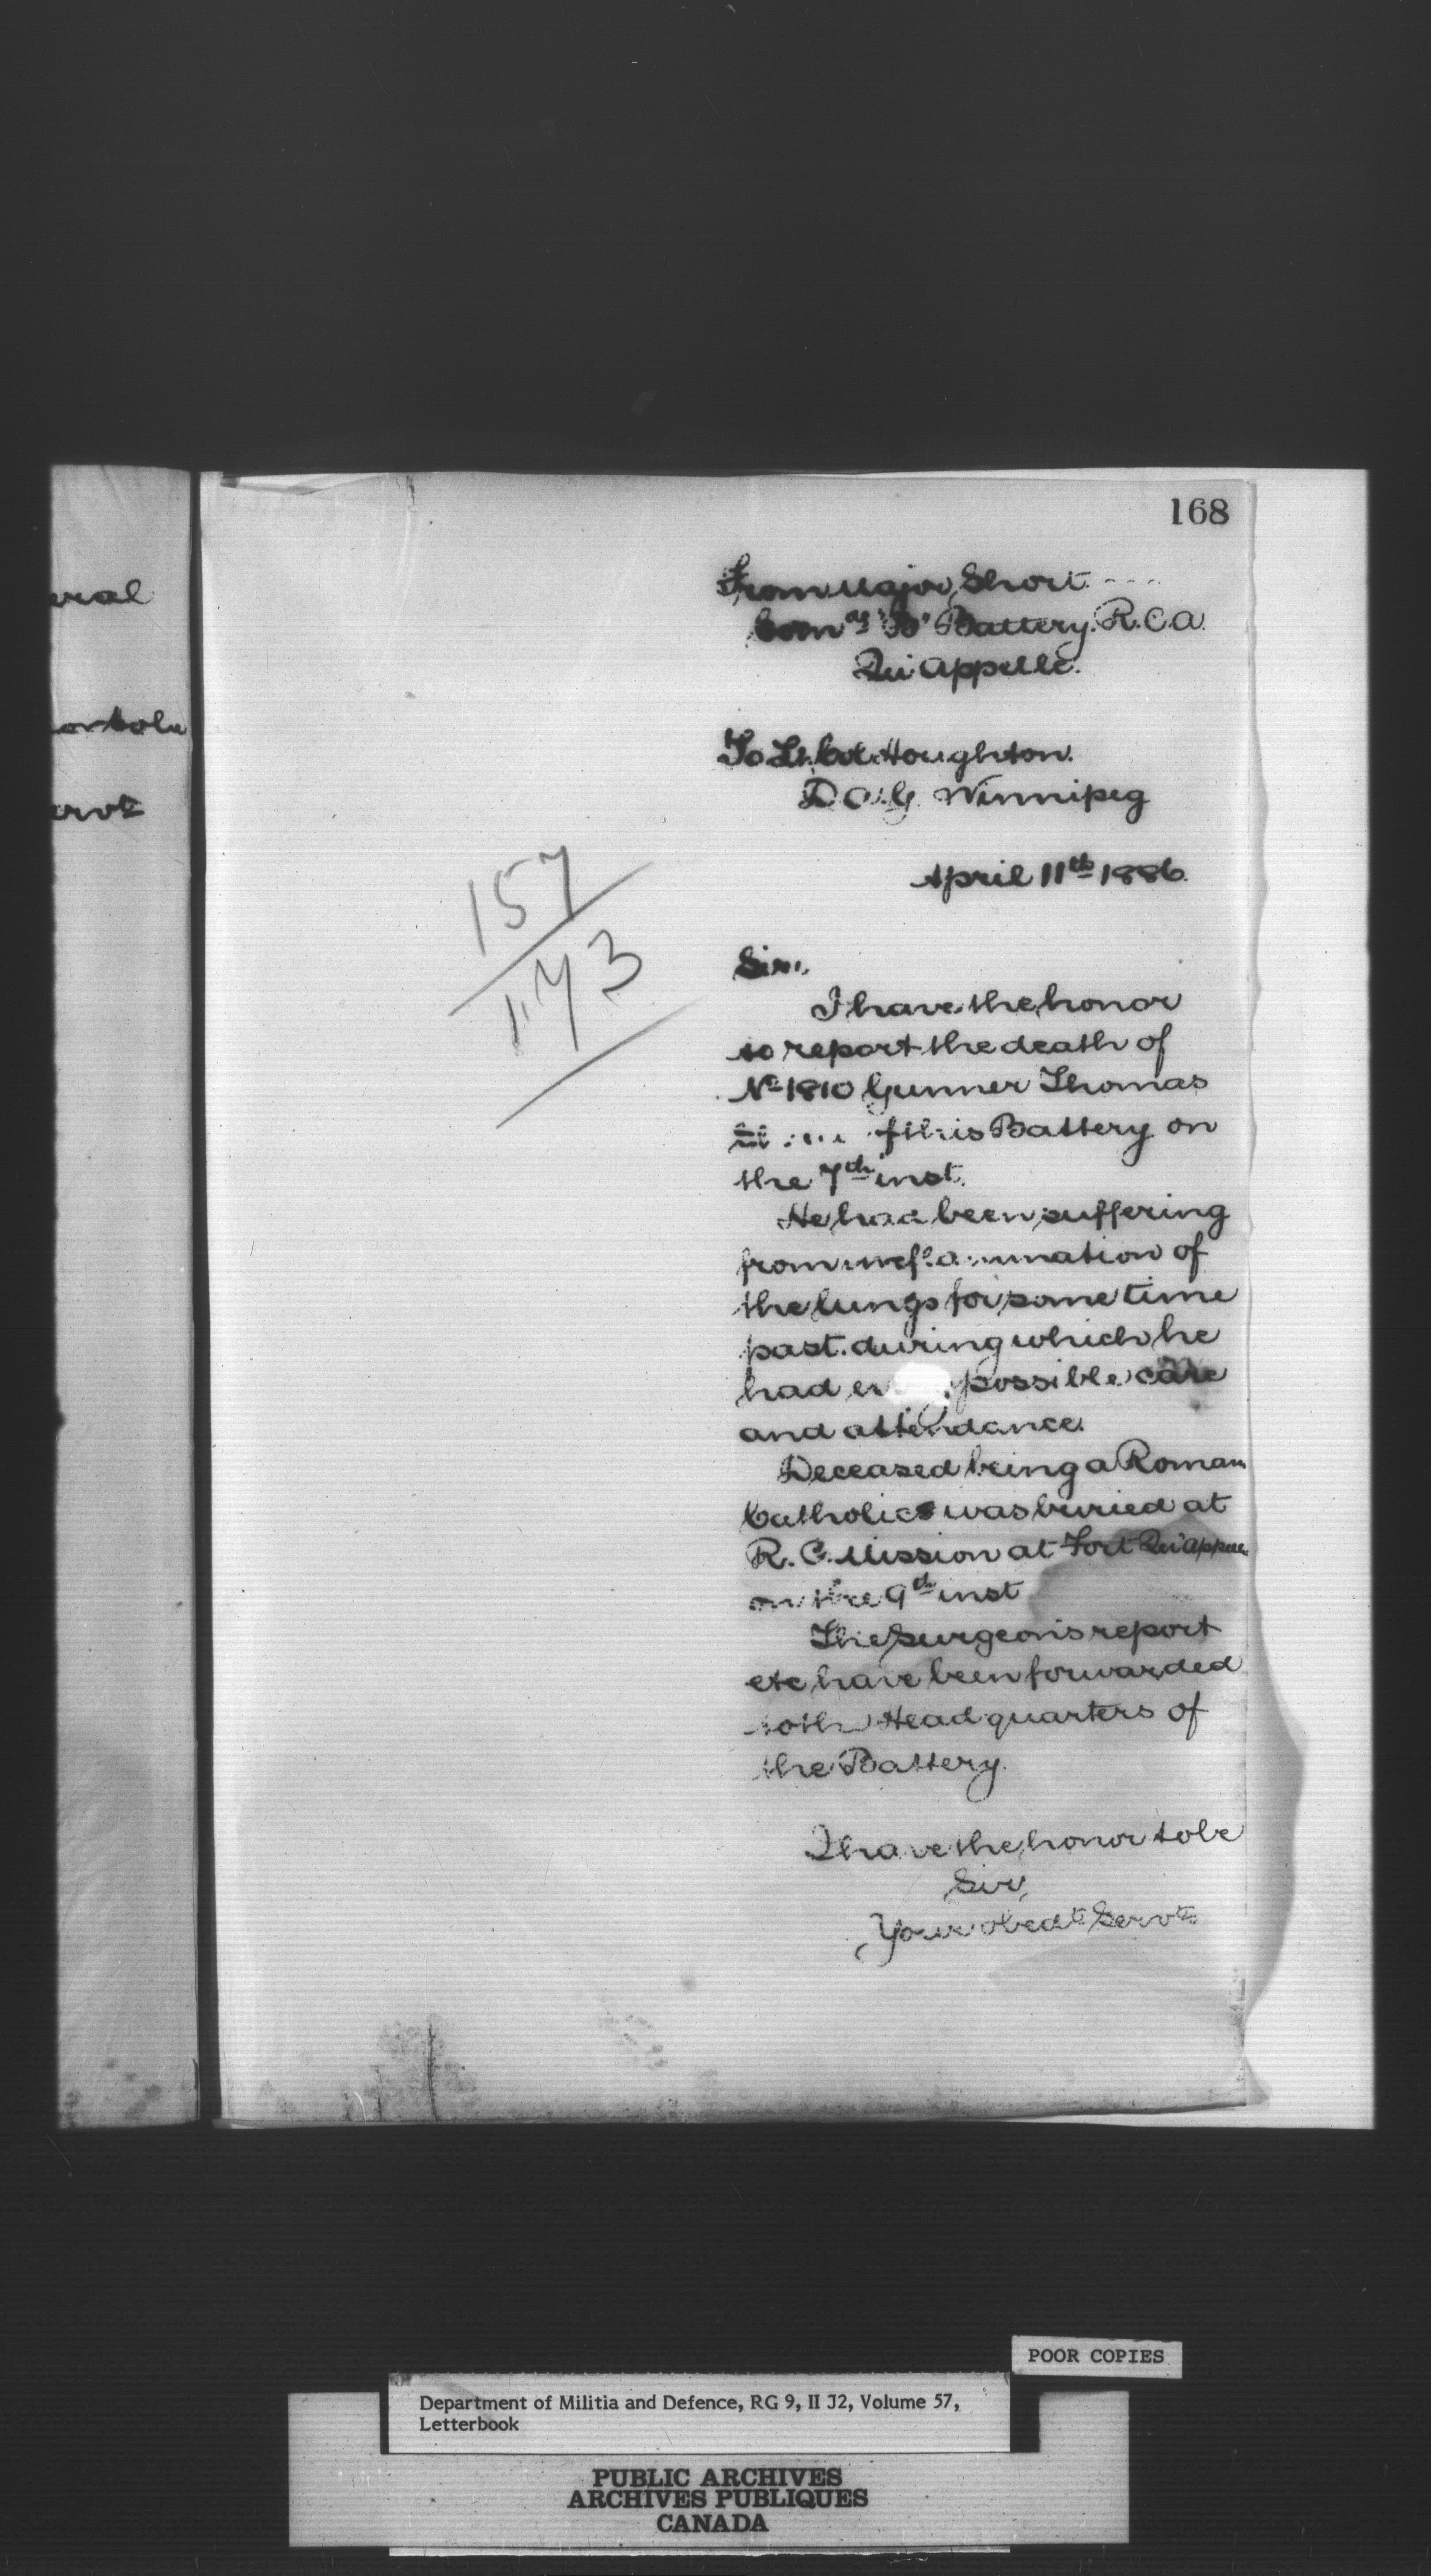 168
eral
ervt
From Major Short
Comdg "B" Battery. R.C.A.
Qu'Appelle.
To Lt. Col. Houghton.
D.A.G. Winnipeg
April 11th 1886.
157
173
Sir,
I have the honor
to report the death of
No 1810 Gunner Thomas
of this Battery on
the 7th inst.
He had been suffering
from inflammation of
the lungs for some time
past. during which he
had every possible care
and attendance.
Deceased being a Roman
Catholic was buried at
R. C. Mission at Fort Qu'Appelle
on the 9th inst
The Surgeon's report
etc have been forwarded
to the Head quarters of
the Battery.
I have the honor to be
Sir,
Your obedt Servt
POOR COPIES
Department of Militia and Defence, RG 9, II J2, Volume 57,
Letterbook
PUBLIC ARCHIVES
ARCHIVES PUBLIQUES
CANADA